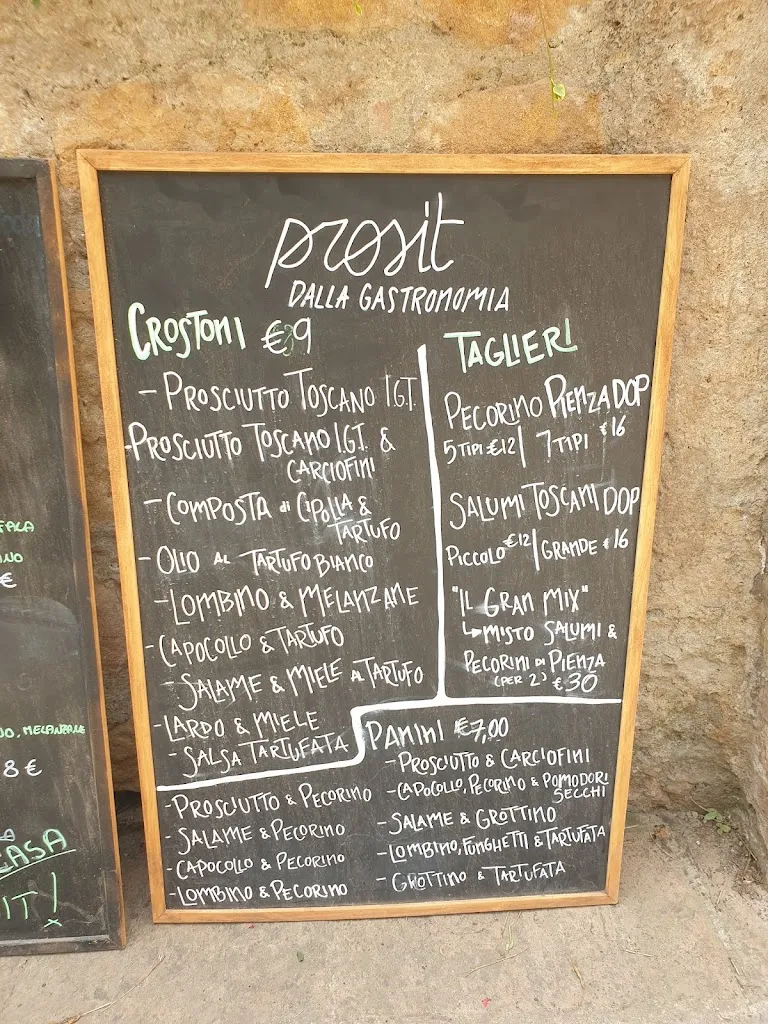 prosit
DALLA GASTRONOMIA
CROSTONI €9
- PROSCIUTTO TOSCANO I.G.T.
- PROSCIUTTO TOSCANO I.G.T. &
CARCIOFINI
- COMPOSTA di CIPOLLA &
TARTUFO
- OLIO AL TARTUFO BIANCO
- LOMBINO & MELANZANE
- CAPOCOLLO & TARTUFO
- SALAME & MIELE AL TARTUFO
- LARDO & MIELE
- SALSA TARTUFATA
TAGLIERI
PECORINO PIENZA DOP
5 TIPI €12 | 7 TIPI €16
SALUMI TOSCANI DOP
PICCOLO €12 | GRANDE €16
"IL GRAN MIX"
↳ MISTO SALUMI &
PECORINI DI PIENZA
(PER 2) €30
PANINI €7,00
- PROSCIUTTO & PECORINO
- SALAME & PECORINO
- CAPOCOLLO & PECORINO
- LOMBINO & PECORINO
- PROSCIUTTO & CARCIOFINI
- CAPOCOLLO, PECORINO & POMODORI
SECCHI
- SALAME & GROTTINO
- LOMBINO, FUNGHETTI & TARTUFATA
- GROTTINO & TARTUFATA
€
, MELANZANE
8 €
CASA
IT!